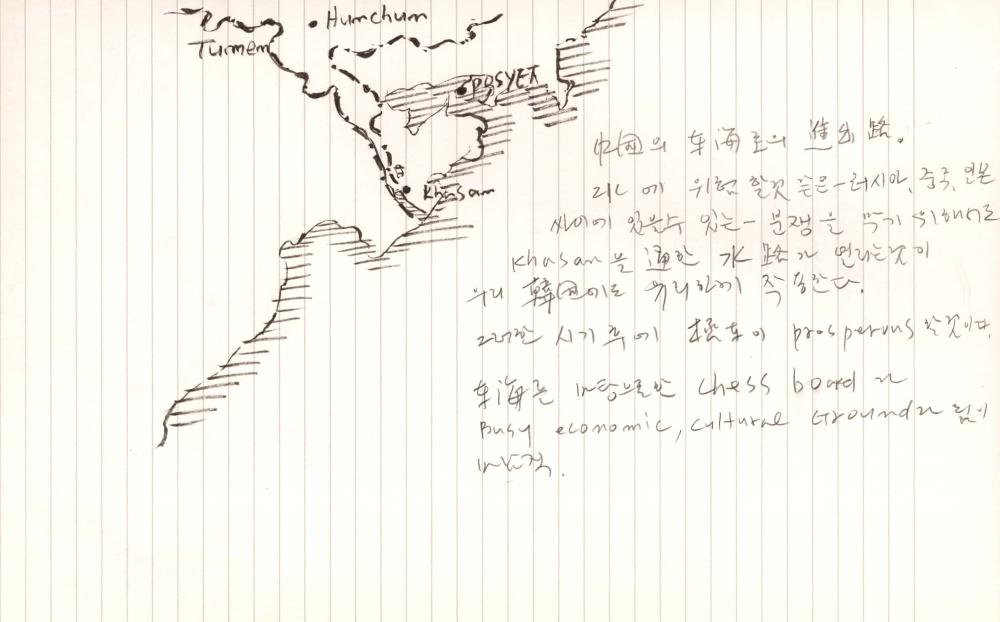 Humchum
Tumem
POSYET
Khasam
中国의 东海로의 進出路.
위험할것 같은-러시아, 중국, 일본
싸이에 있을수 있는- 분쟁을 막기 위해서로
Khasan을 通한 水路가 열리는것이
우리 韓国에도 유리하게 작용한다.
그러한 시기 후에 极东이 prosperous 할것이다.
东海를 바탕으로한 chess board가
Busy economic, cultural Ground가 됨이
바람직.